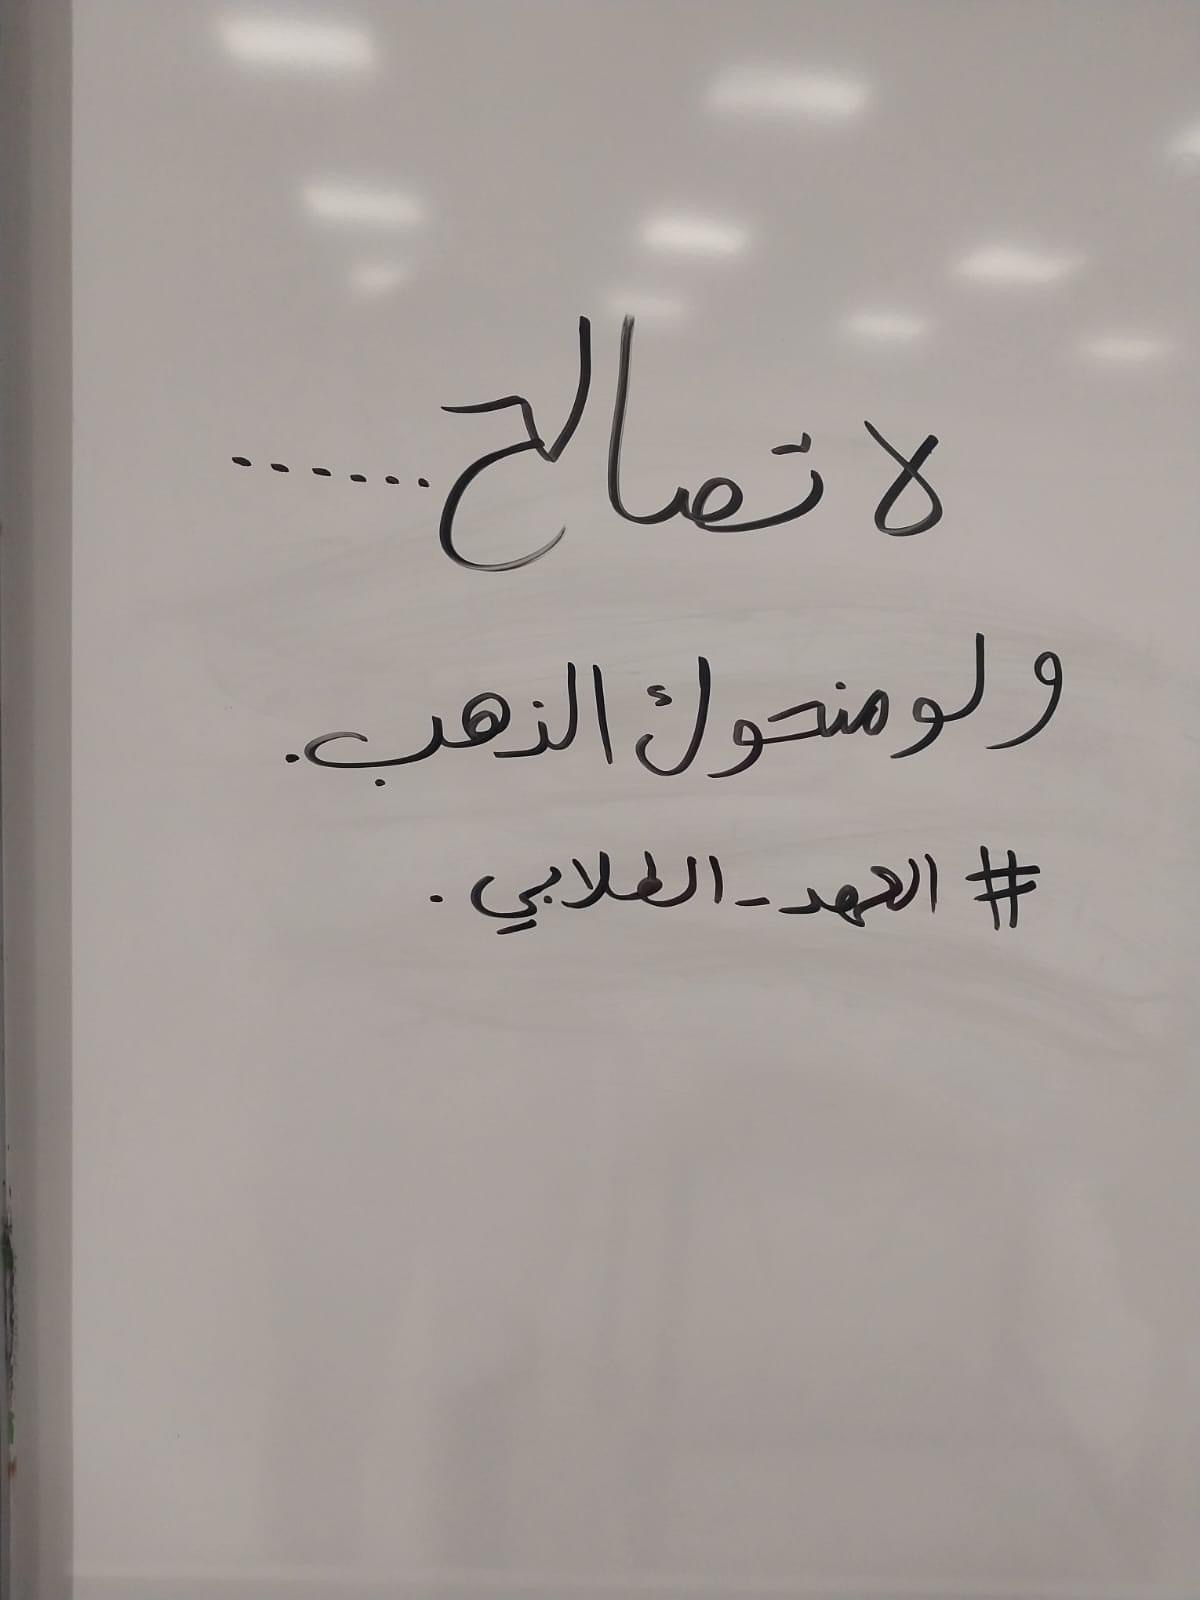 لا تصالح ......
ولو منحوك الذهب.
# العهد_الطلابي.